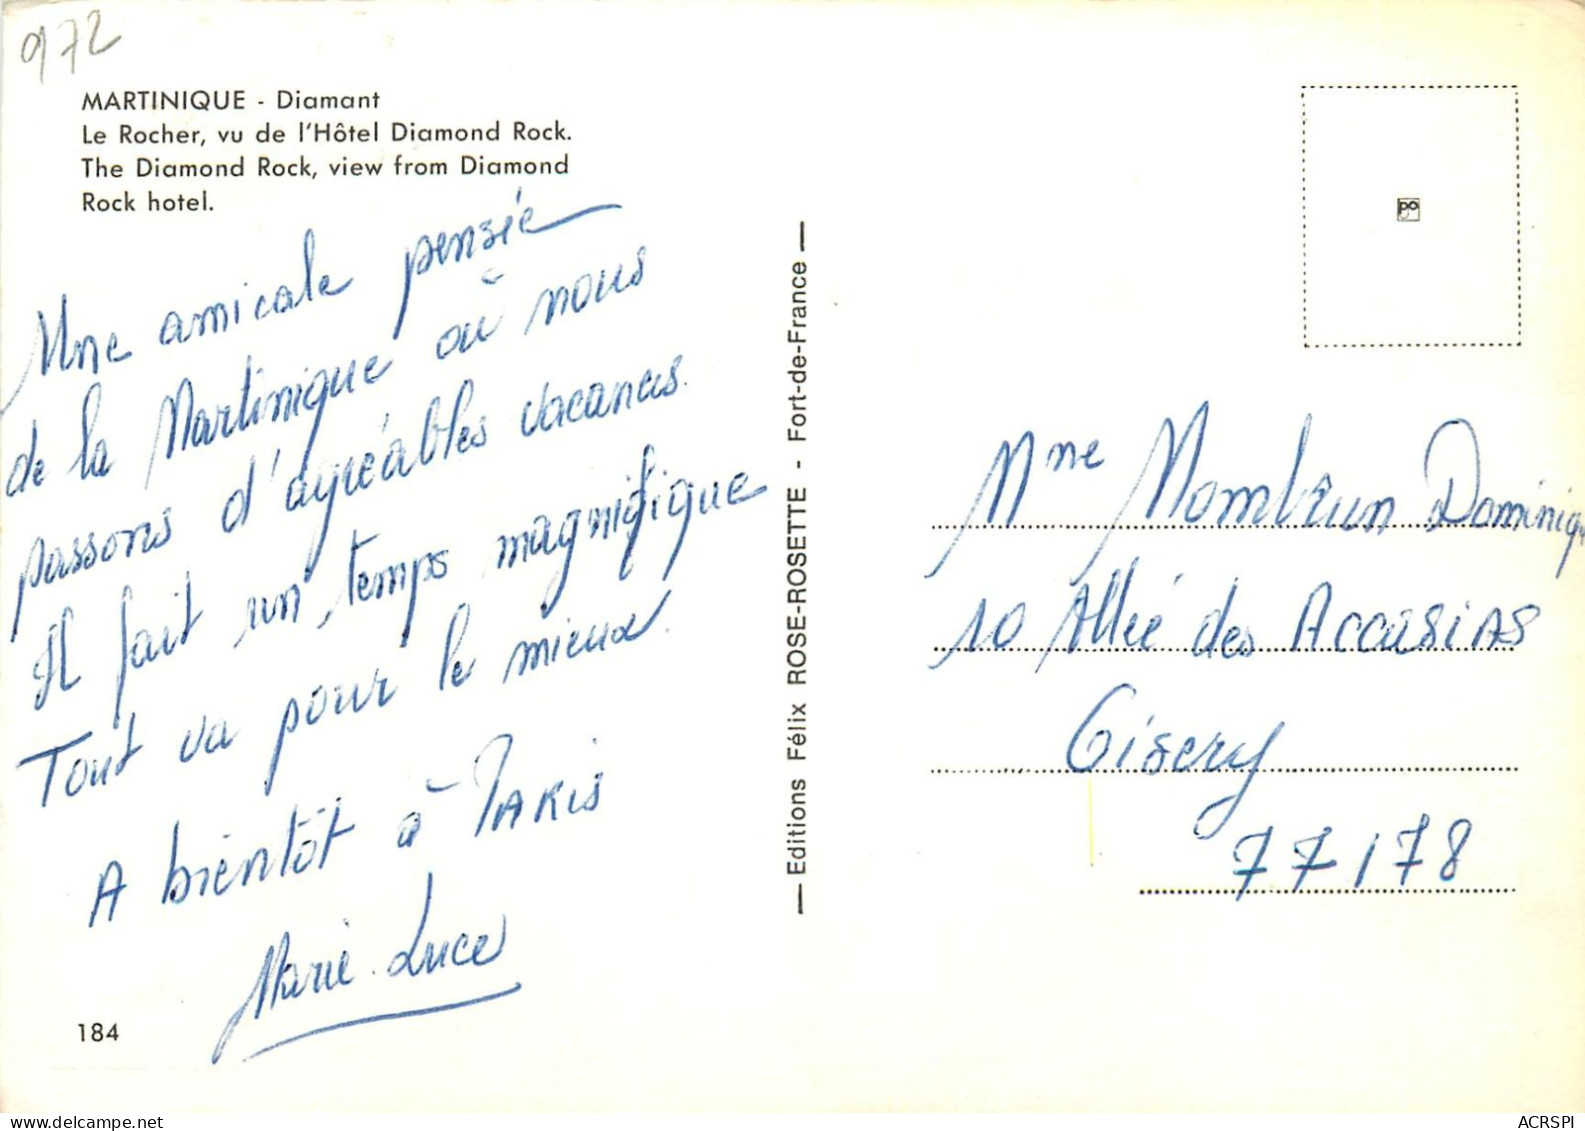 972
MARTINIQUE - Diamant
Le Rocher, vu de l'Hôtel Diamond Rock.
The Diamond Rock, view from Diamond
Rock hotel.
Une amicale pensée
de la Martinique où nous
passons d'agréables vacances.
Il fait un temps magnifique
Tout va pour le mieux.
A bientôt à PARIS
Marie. Luce
184
— Editions Félix ROSE-ROSETTE - Fort-de-France —
po
Mme Mombrun Dominiq
10 Allée des Accasias
Oisery
77178
ACRSPI